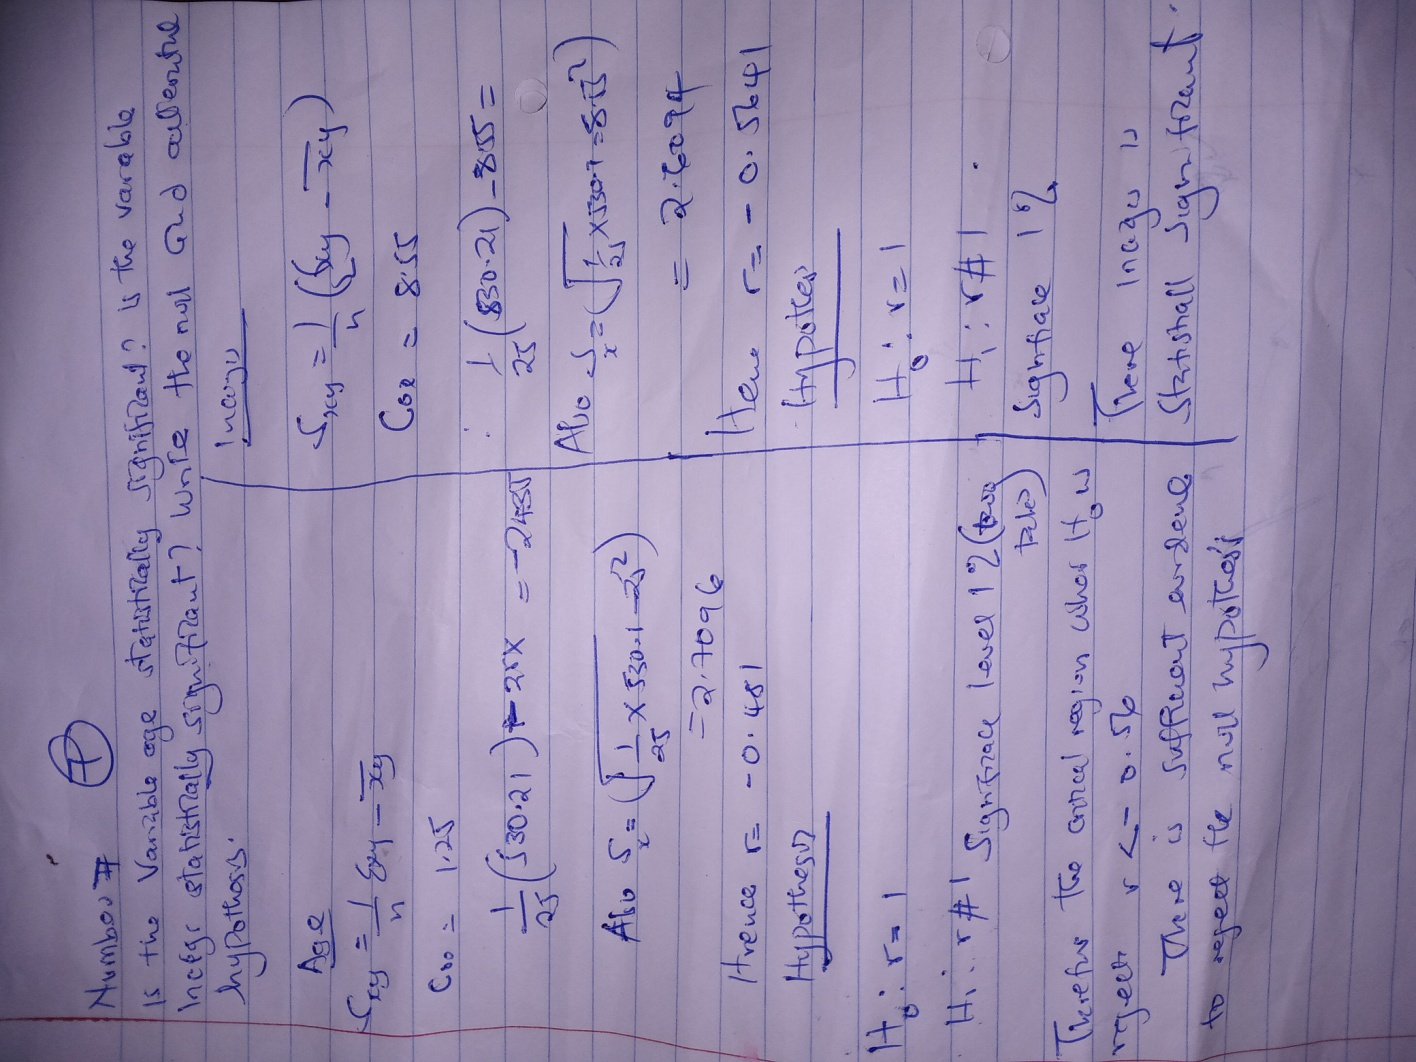 Number 7
Is the Variable age statistically significant? is the variable
Incage statistically significant? Write the null and alternative
hypothesis.
Age
Sxy = 1/n Σxy - x̄y
= 1.25
1/25 (530.21) - 25x = -2485
Also Sx = (√1/25 x 530.1 - 25²)
= 2.7096
Hence r = -0.481
Hypothesis
H₀: r = 1
H₁: r # 1 Significance level 1% (two
tailed)
Therefore the critical region when H₀ is
reject r < -0.56
There is sufficient evidence
to reject the null hypothesis
Incage
Sxy = 1/n (Σxy - x̄y)
= 855
∴ 1/25 (830.21) - 855 =
Also Sx = (√1/25 x 530.1 = 855²)
= 2.6094
Hence r = -0.5641
Hypothesis
H₀: r = 1
H₁: r # 1.
Significance 1%
There Incage is
Statistical Significant.